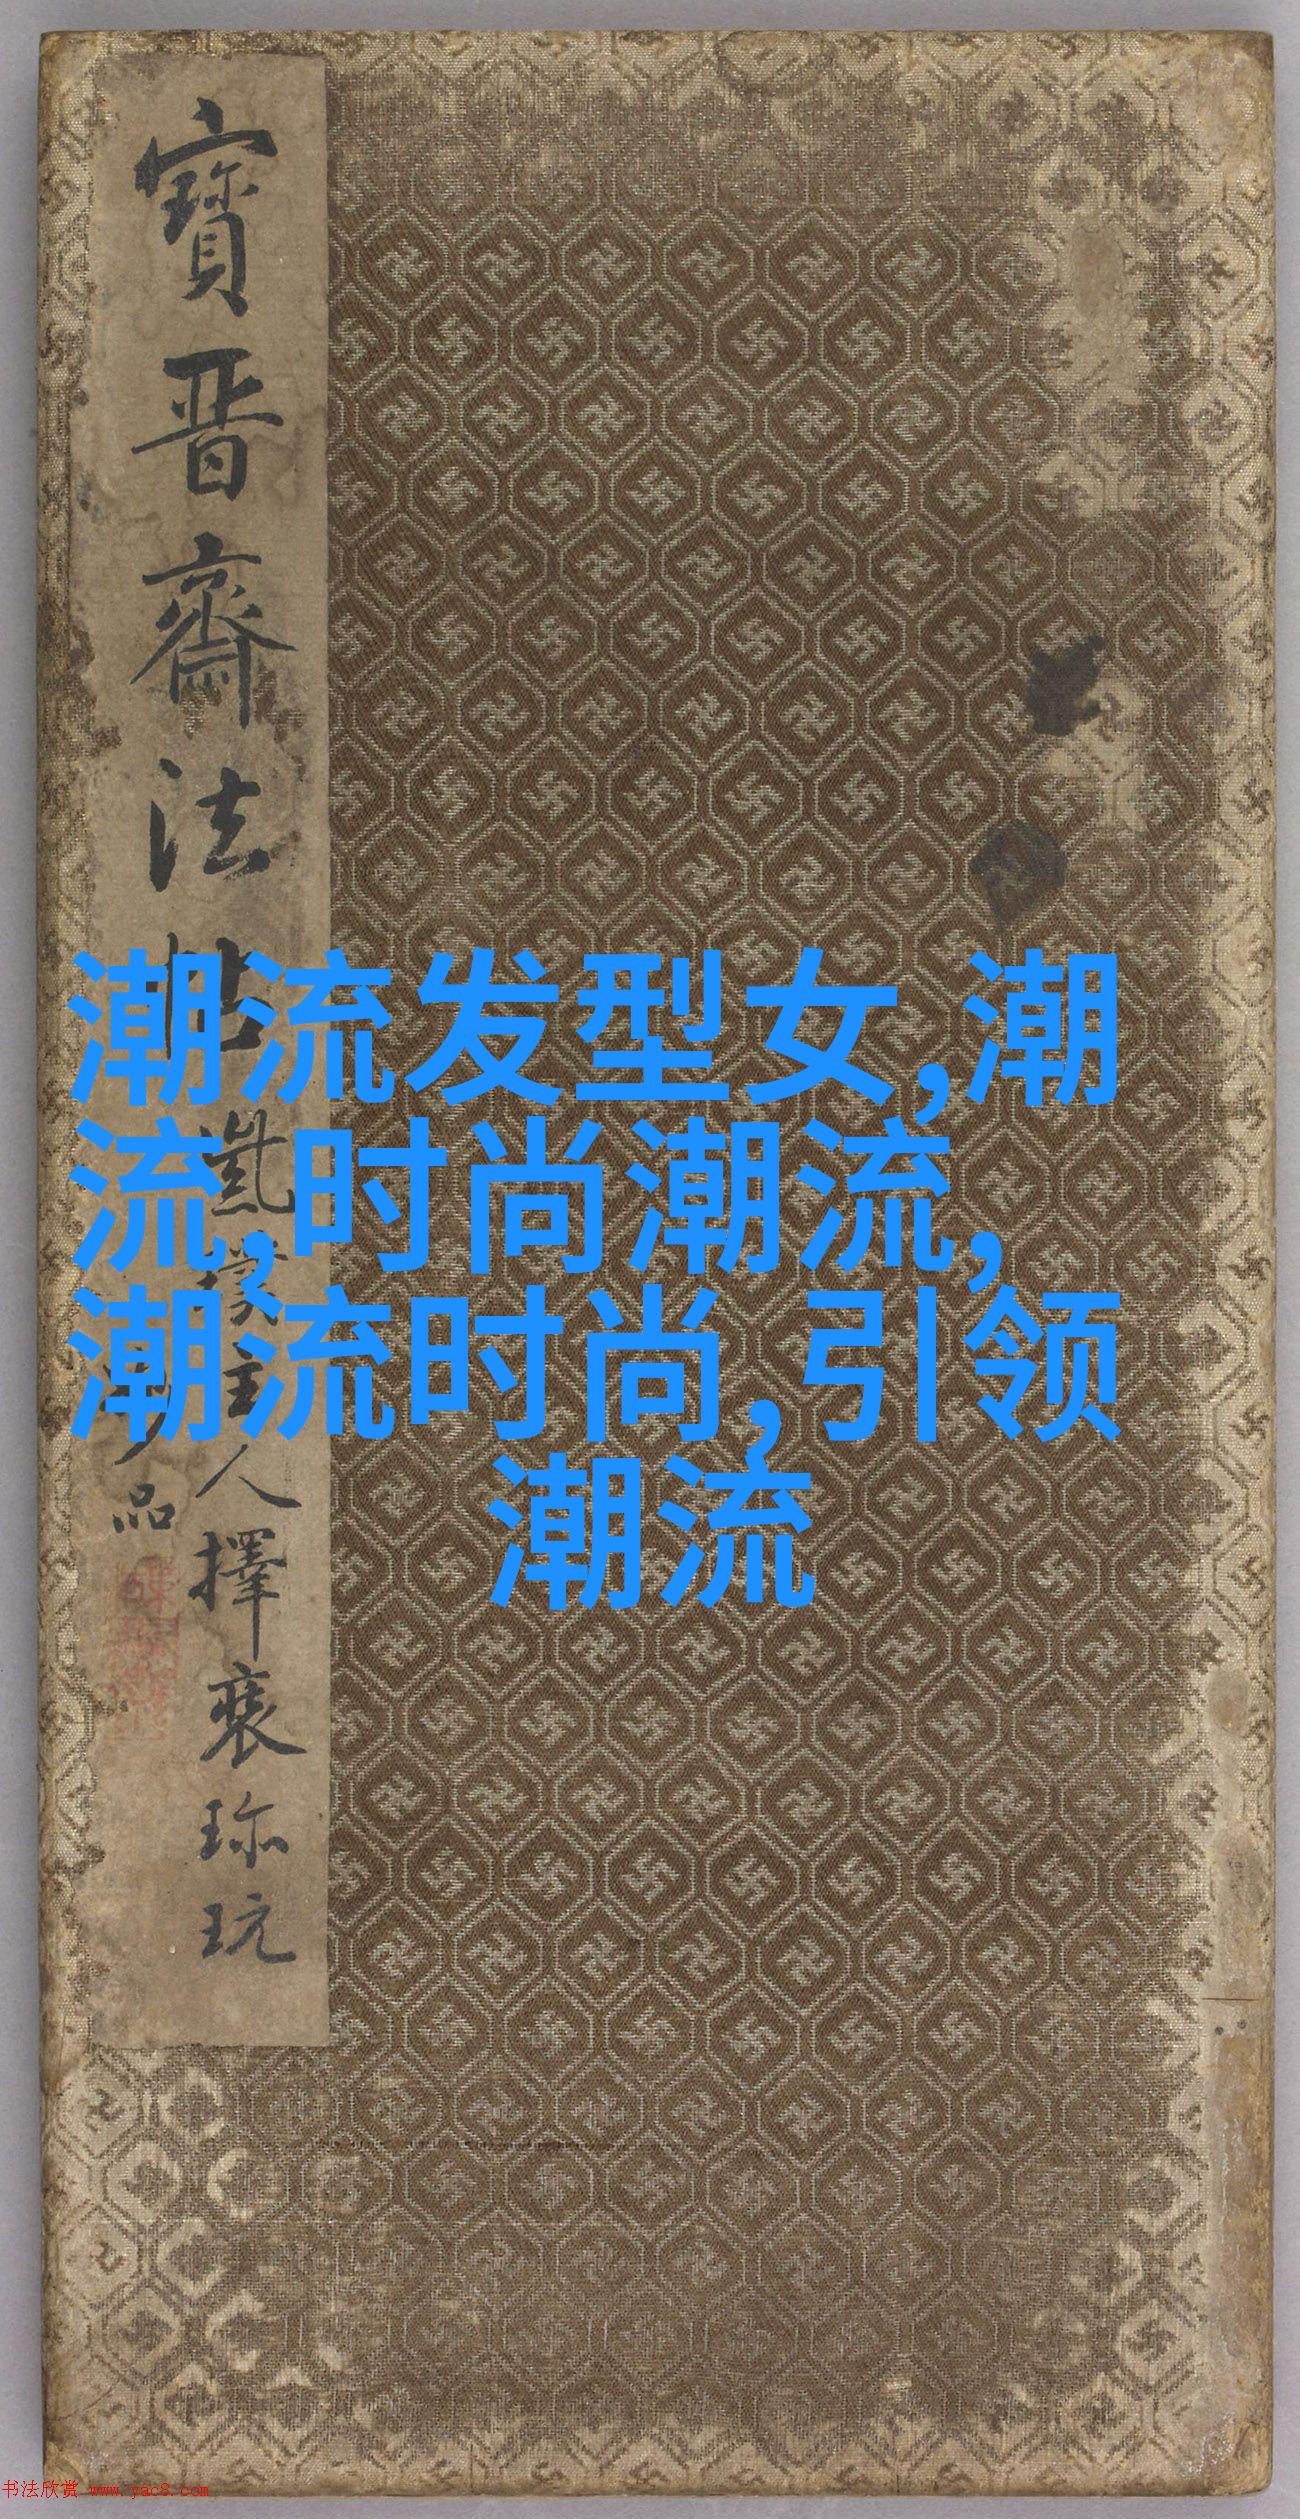 寶晋齋法帖
主人擇裘珎玩
品
潮流发型女,潮
流,时尚潮流,
潮流时尚,引领
潮流
书法欣赏 www.yac8.com